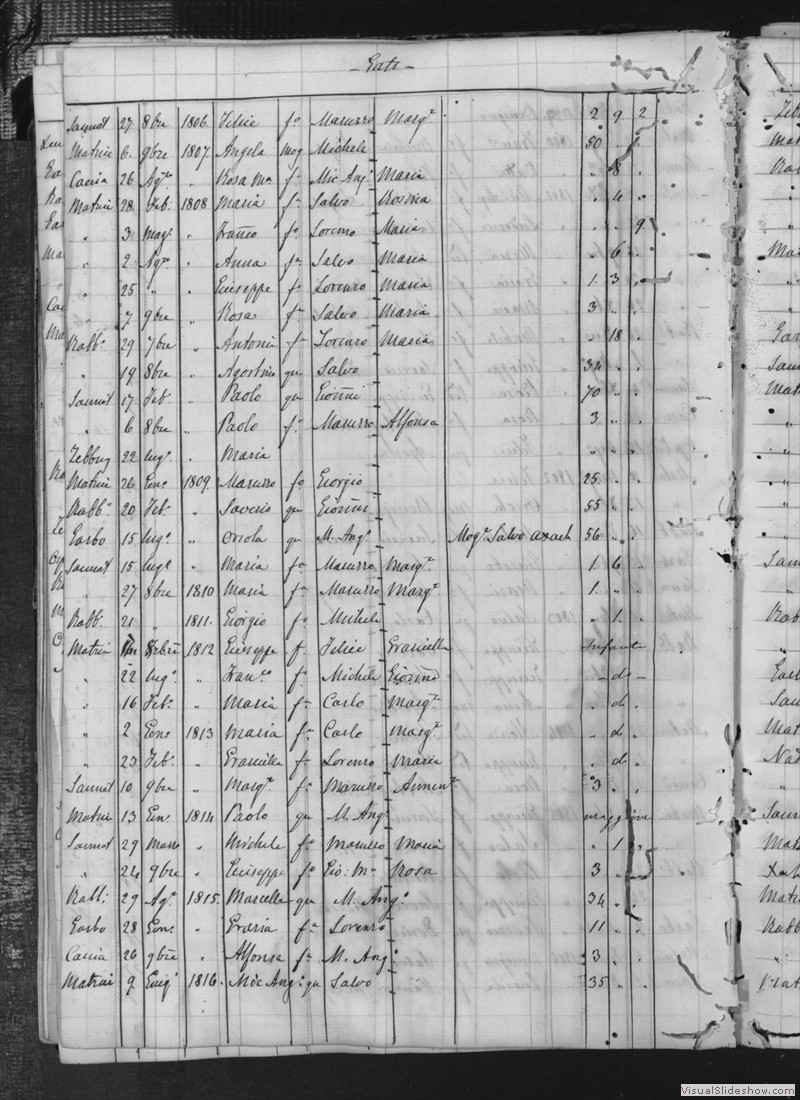 Gatt
Sannat 27 8bre 1806 Felice fo Masurro Margta 2 9 2
Matrice 6 9bre 1807 Angela mog Michele 50 " .
Caccia 26 Agto " Rosa Ma fa Mic Ango Maria " 8
Matrice 28 Feb. 1808 Maria fa Salvo Rosina . 4 .
" 3 Magi " Franco fo Lorenzo Maria . . 9
" 2 Agto " Anna fa Salvo Maria . 6 .
" 25 " " Giuseppe fo Lorenzo Maria 1 3 .
" 7 9bre " Rosa fa Salvo Maria 3 " .
Rabbo 29 7bre " Antonia fa Lorenzo Maria . 18 .
" 19 8bre " Agostino qu Salvo 34 " .
Sannat 17 Feb. " Paolo qu Gioñni 70 " .
" 6 8bre " Paolo fo Masurro Alfonsa 3 " .
Zebbug 22 lugo " Maria " " .
Matrice 26 Gene 1809 Masurro fo Giorgio 25 . .
Rabbo 20 Feb. " Saverio qu Gioñni 55 " .
Garbo 15 lugo " Orsola qu M. Ango Moge Salvo Axach 56 . .
Sannat 15 lugo " Maria fa Masurro Margta 1 6 .
" 27 8bre 1810 Maria fa Masurro Margta 1 . .
Rabbo 21 " 1811 Giorgio fo Michele . 1 .
Matrice 8bre 1812 Giuseppe f. Felice Graziella Infante
" 22 lugo " Franco fo Michele Gioñna - do -
" 16 Feb. " Maria fa Carlo Margta . do .
" 2 Gene 1813 Maria fa Carlo Margta . do .
" 23 Feb. " Graziella fa Lorenzo Maria . do .
Sannat 10 9bre " Margta fa Masurro 3 . .
Matrice 13 Gen. 1814 Paolo qu M. Ango maggiore
Sannat 29 Marzo " Michele fo Masurro Maria " 1 .
" 24 9bre " Giuseppe fo Gio: Ma Rosa 3 " .
Rabb: 29 Agto 1815 Marcello qu M. Ango 34 . .
Garbo 28 Gene " Grazia fa Lorenzo 11 " .
Caccia 26 9bre " Alfonsa fa M. Ango 3 . .
Matrice 9 Giugo 1816 Mic Ango qu Salvo 35 " .
VisualSlideshow.com